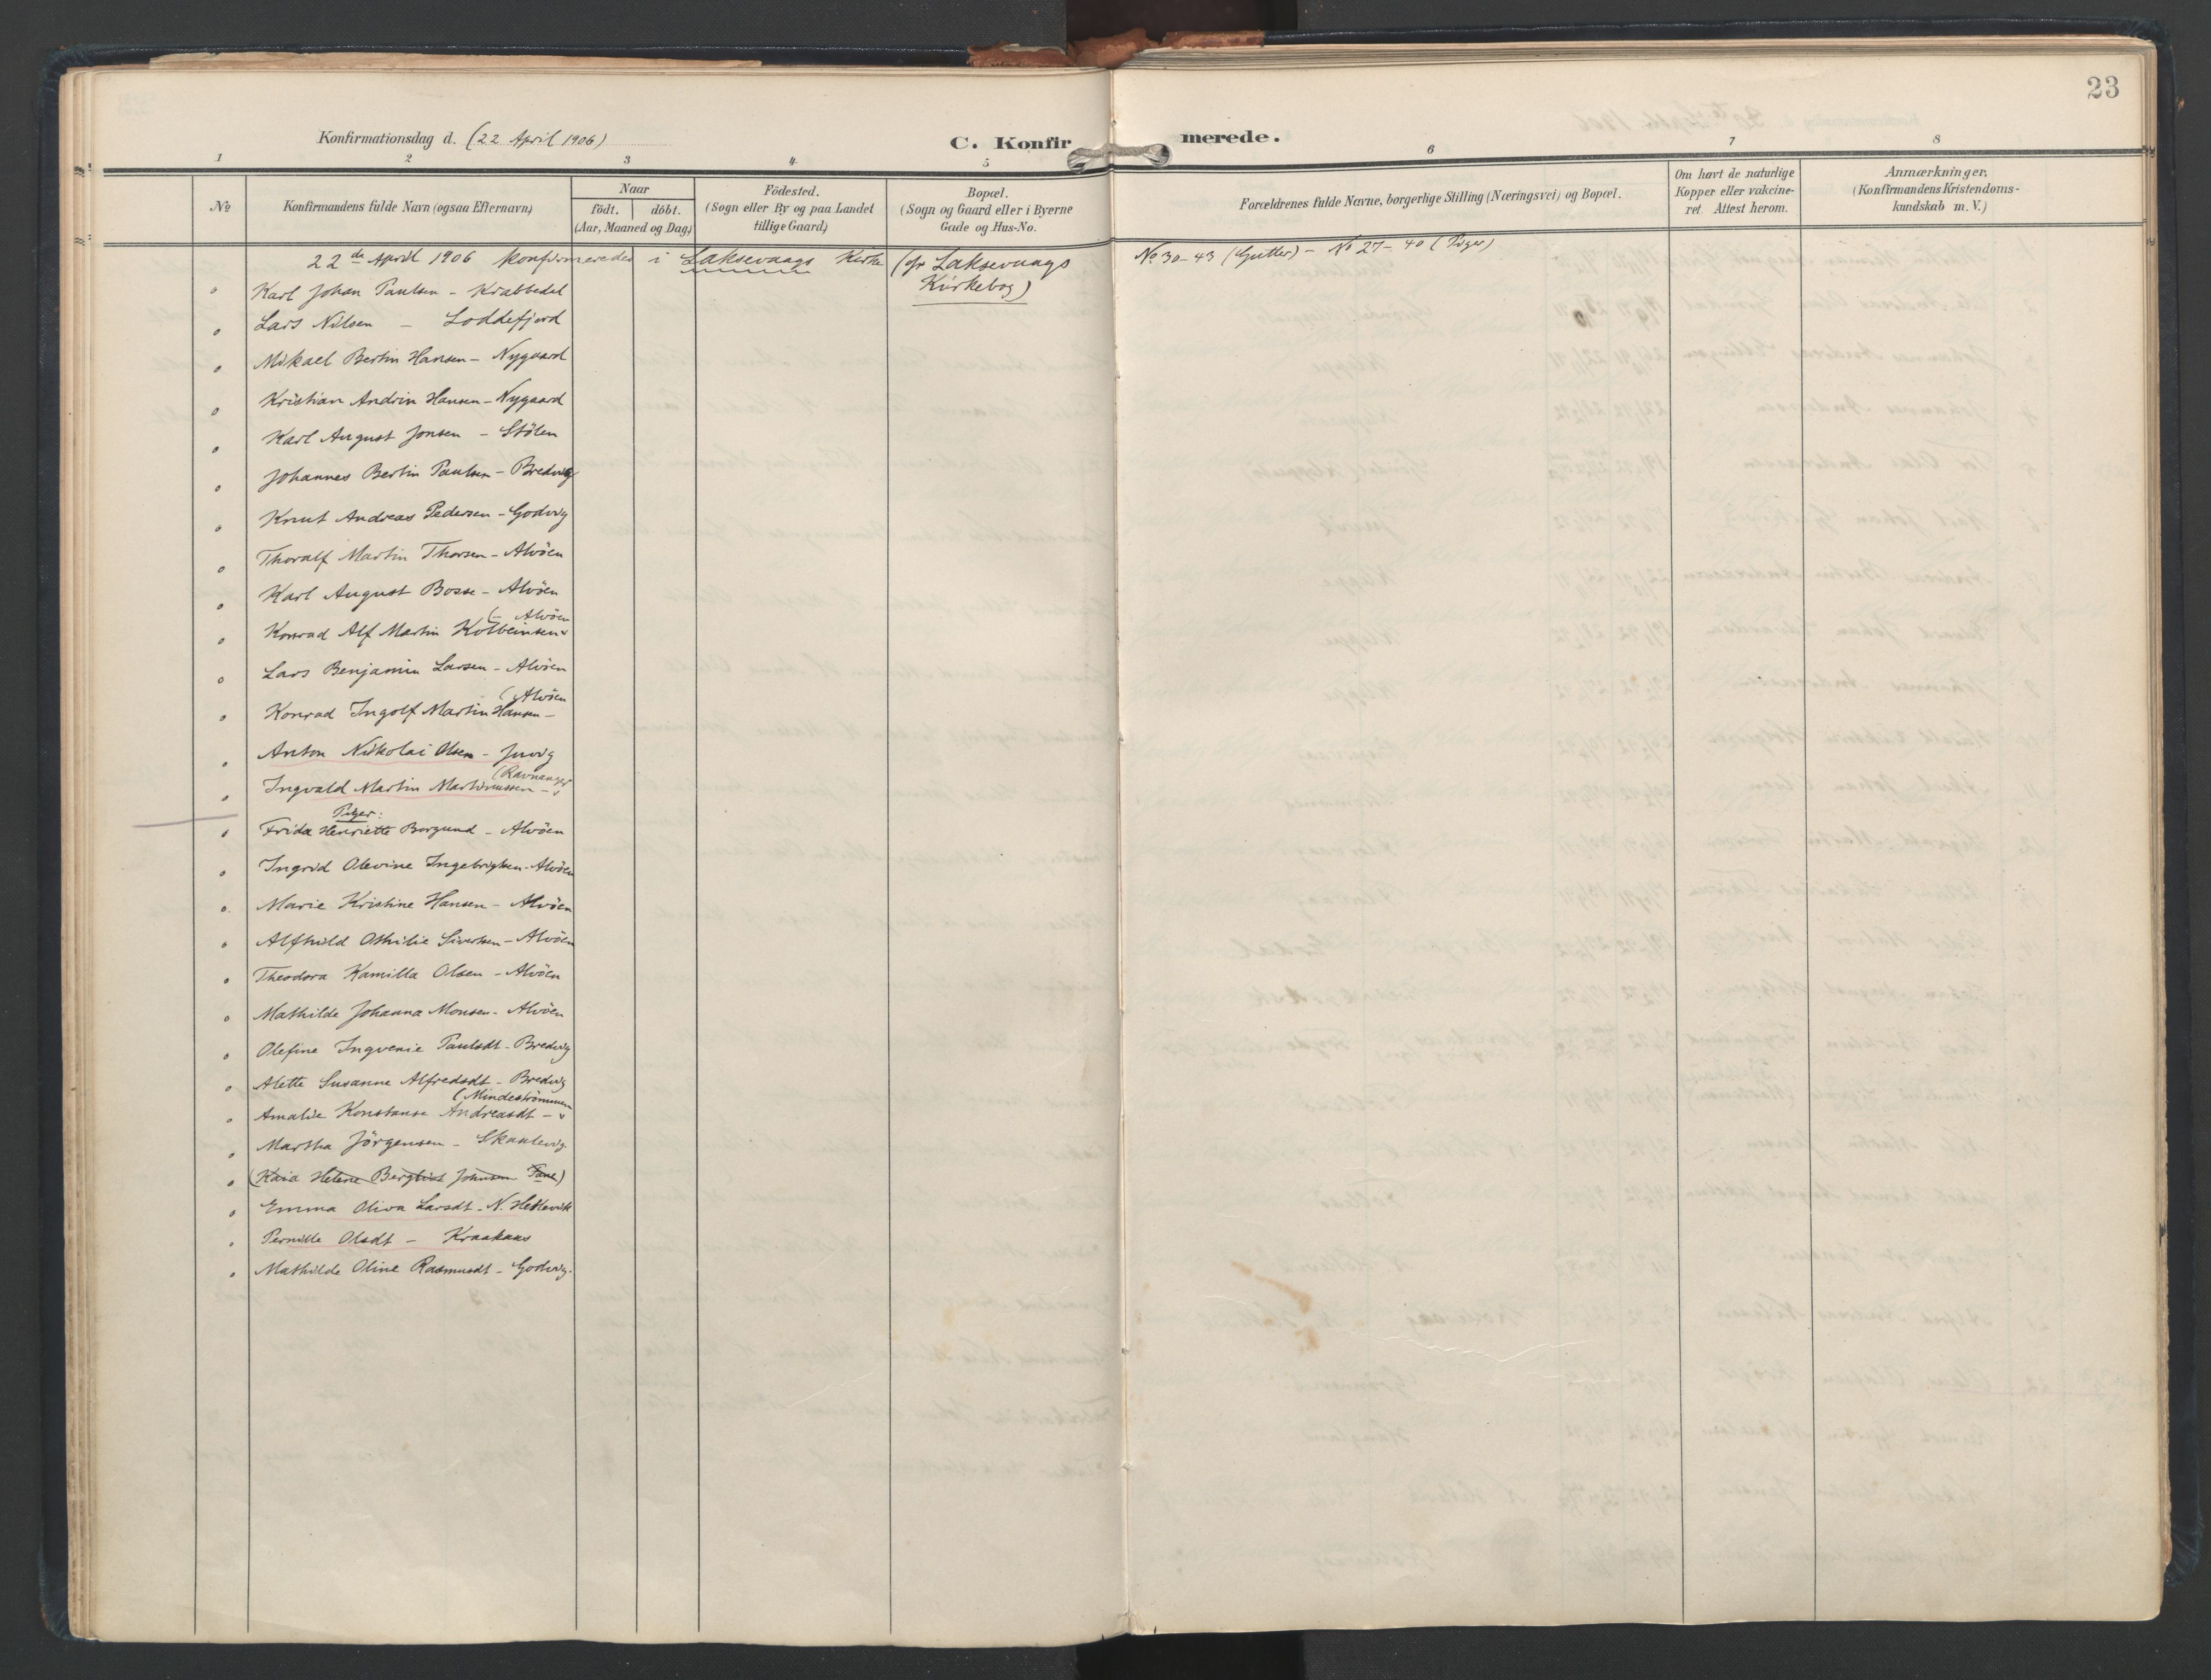 23
Konfirmationsdag d. (22 April 1906)
C. Konfirmerede.
1 2 3 4 5 6 7 8
No
Konfirmandens fulde Navn (ogsaa Efternavn)
Naar
födt. döbt.
(Aar, Maaned og Dag)
Födested.
(Sogn eller By og paa Landet
tillige Gaard)
Bopæl.
(Sogn og Gaard eller i Byerne
Gade og Hus-No.
Forældrenes fulde Navne, borgerlige Stilling (Næringsvei) og Bopæl.
Om havt de naturlige
Kopper eller vakcine-
ret. Attest herom.
Anmærkninger.
(Konfirmandens Kristendoms-
kundskab m. V.)
22de April 1906 konfirmereded i Laksevaags Kirke (cfr Laksevaags
Kirkebog)
No 30-43 (Gutter) - No 27-40 (Piger)
Karl Johan Paulsen - Krabbedal
Lars Nilsen - Loddefjord
Mikael Bertin Hansen - Nygaard
Kristian Andrin Hansen - Nygaard
Karl August Jonsen - Stölen
Johannes Bertin Paulsen - Bredvig
Knut Andreas Pedersen - Godvig
Thoralf Martin Thorsen - Alvöen
Karl August Bosse - Alvöen
(- Alvöen
Konrad Alf Martin Kolbeinsen
Lars Benjamin Larsen - Alvöen
(Alvöen
Konrad Ingolf Martin Hansen -
Anton Nikolai Olsen - Juvig
(Ravnanger
Ingvald Martin Martinussen -
Piger:
Frida Henriette Borgund - Alvöen
Ingrid Olevine Ingebrigtsen - Alvöen
Marie Kristine Hansen - Alvöen
Alfhild Othilie Sivertsen - Alvöen
Theodora Kamilla Olsen - Alvöen
Mathilde Johanna Monsen - Alvöen
Olefine Ingvenie Paulsdt - Bredvig
Alette Susanne Alfredsdt - Bredvig
(Mindeströmmen
Amalie Konstanse Andreasdt -
Martha Jörgensen - Skaalevig
(Kaia Helene Bergliot Johnsen Fane)
Emma Oliva Larsdt - N. Hetlevik
Pernille Olsdt - Kraakaas
Mathilde Oline Rasmusdt - Godvig.